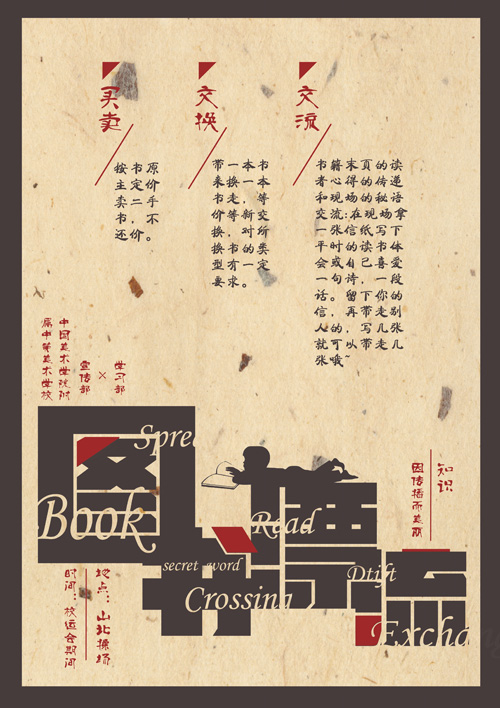 买卖
按书原
主定价
卖二手
书,不
还价。
交换
带一本书
来换一本
书走,等
价等新交
换,对所
换书的类
型有一定
要求。
交流
书籍末页的读
者心得的传递
和现场的秘语
交流:现场拿
一张信纸写下
平时的读书体
会或自已喜爱
一句诗,一段
话。留下你的
信,带走别
人的,再写几张
就可以带走几
张哦~
中国美术学院附
属中等美术学校
学习部
×
宣传部
知识
因传播而美丽
图书漂流
Spre
Book
Read
secret sword
Crossing
Dtift
Excha
地点:山北操场
时间:校运会期间